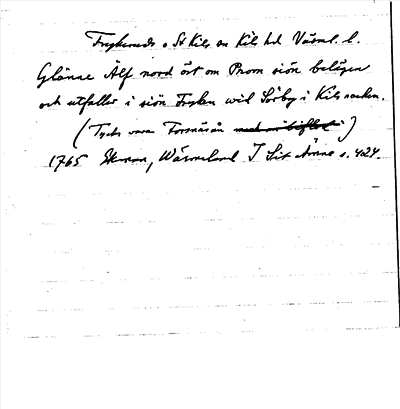 Frykeruds o St Kils sn Kils hd Värml. l.
Glänne Älf nord öst om Prom siön belägen
och utfaller i siön Fryken wid Sörby i Kils socken.
(Tycks vara Forsnäsån)
1765 Ekman, Wärmeland I Sit Ämne s. 424.